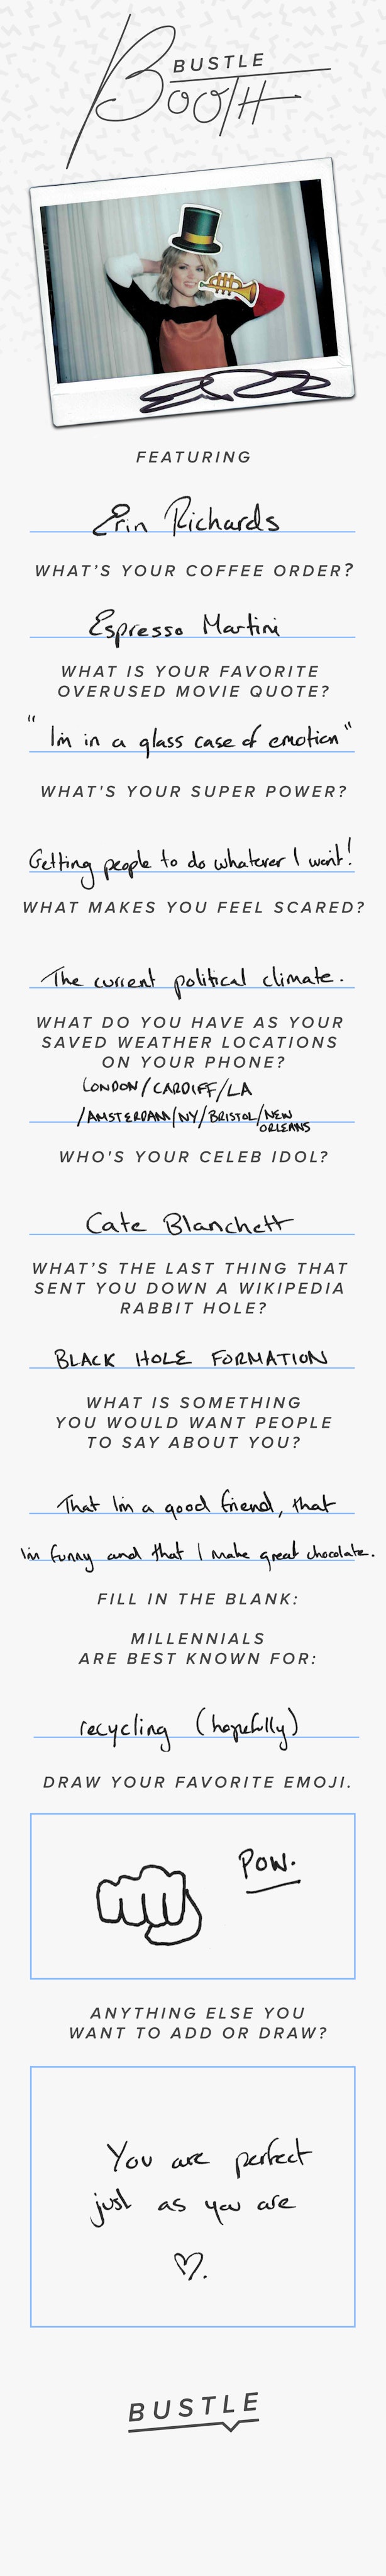 BUSTLE
BOOTH
FEATURING
Erin Richards
WHAT'S YOUR COFFEE ORDER?
Espresso Martini
WHAT IS YOUR FAVORITE
OVERUSED MOVIE QUOTE?
"I'm in a glass case of emotion"
WHAT'S YOUR SUPER POWER?
Getting people to do whatever I want!
WHAT MAKES YOU FEEL SCARED?
The current political climate.
WHAT DO YOU HAVE AS YOUR
SAVED WEATHER LOCATIONS
ON YOUR PHONE?
LONDON/CARDIFF/LA
/AMSTERDAM/NY/BRISTOL/NEW
ORLEANS
WHO'S YOUR CELEB IDOL?
Cate Blanchett
WHAT'S THE LAST THING THAT
SENT YOU DOWN A WIKIPEDIA
RABBIT HOLE?
BLACK HOLE FORMATION
WHAT IS SOMETHING
YOU WOULD WANT PEOPLE
TO SAY ABOUT YOU?
That I'm a good friend, that
I'm funny and that I make great chocolate.
FILL IN THE BLANK:
MILLENNIALS
ARE BEST KNOWN FOR:
recycling (hopefully)
DRAW YOUR FAVORITE EMOJI.
POW.
ANYTHING ELSE YOU
WANT TO ADD OR DRAW?
You are perfect
just as you are
BUSTLE